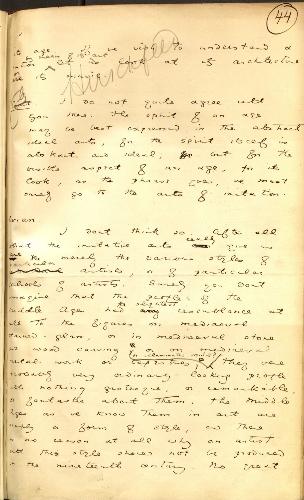 44
its age. If we wish to understand a
look at its architecture
or its music.
I do not quite agree with
you there. The spirit of an age
may be best expressed in the abstract
ideal arts, for the spirit itself is
abstract and ideal, but for the
visible aspect of an age, for its
look, as the phrase goes, we must
surely go to the arts of imitation.
I dont think so. After all
what the imitative arts really give us
are merely the various styles of
particular artists, or of particular
schools of artists. Surely you dont
imagine that the people of the
middle Ages had any resemblance at
all to the figures on mediaeval
stained-glass, or in mediaeval stone
and wood carving or on mediaeval
metal-work or tapestries. They were
probably very ordinary looking people
with nothing grotesque, or remarkable
or fantastic about them. The middle
ages as we know them in art are
merely a form of style, and there
is no reason at all why an artist
with this style should not be produced
in the nineteenth century. No great